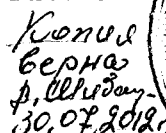 Копия
верна
30.07.2018